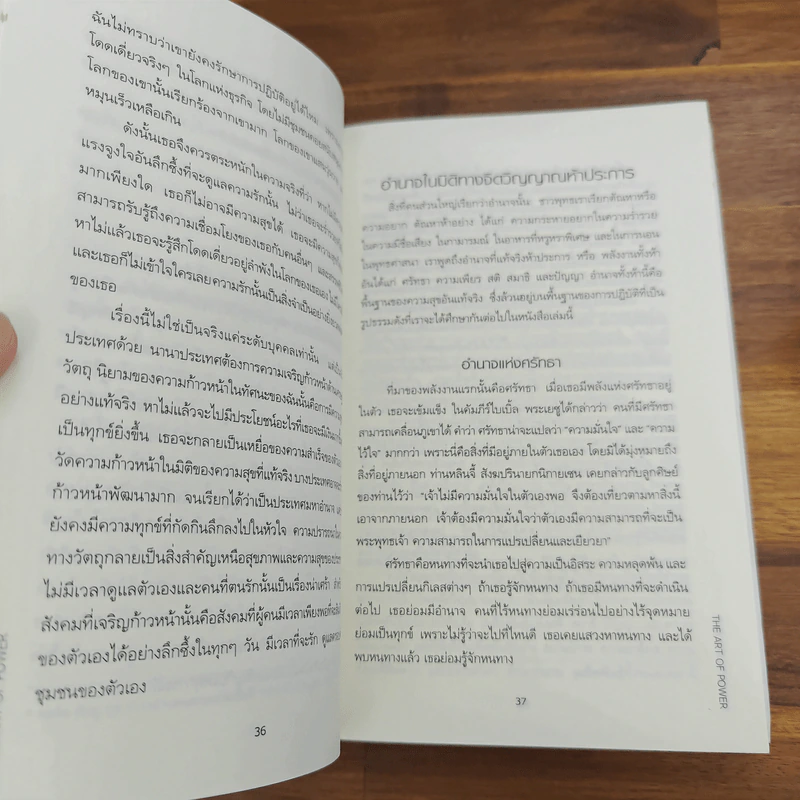 ฉันไม่ทราบว่าเขายังคงรักษาการปฏิบัติอยู่ได้ไหม
โดดเดี่ยวจริงๆ ในโลกแห่งธุรกิจ โดยไม่มีชุมชน
โลกของเขานั้นเรียกร้องจากเขามาก โลกของเขา
หมุนเร็วเหลือเกิน
ดังนั้นเธอจึงควรตระหนักในความจริงที่ว่า หาก
แรงจูงใจอันลึกซึ้งที่จะดูแลความรักนั้น ไม่ว่าเธอจะร่ำรวย
มากเพียงใด เธอก็ไม่อาจมีความสุขได้ เธอจะมีความ
สามารถรับรู้ถึงความเชื่อมโยงของเธอกับคนอื่นๆ และ
หาไม่แล้วเธอจะรู้สึกโดดเดี่ยวอยู่ลำพังในโลกของเธอเอง
และเธอก็ไม่เข้าใจใครเลย ความรักนั้นเป็นสิ่งจำเป็นอย่างยิ่ง
ของเธอ
เรื่องนี้ไม่ใช่เป็นจริงแค่ระดับบุคคลเท่านั้น
ประเทศด้วย นานาประเทศต้องการความเจริญก้าวหน้าด้าน
วัตถุ นิยามของความก้าวหน้าในทัศนะของฉันนั้นคือการมีความ
อย่างแท้จริง หาไม่แล้วจะไปมีประโยชน์อะไรที่เธอจะมีเงิน
เป็นทุกข์ยิ่งขึ้น เธอจะกลายเป็นเหยื่อของความสำเร็จของตัวเอง
วัดความก้าวหน้าในมิติของความสุขที่แท้จริง บางประเทศอาจ
ก้าวหน้าพัฒนามาก จนเรียกได้ว่าเป็นประเทศมหาอำนาจ
ยังคงมีความทุกข์ที่กัดกินลึกลงไปในหัวใจ ความปรารถนา
ทางวัตถุกลายเป็นสิ่งสำคัญเหนือสุขภาพและความสุขของ
ไม่มีเวลาดูแลตัวเองและคนที่ตนรักนั้นเป็นเรื่องน่าเศร้า
สังคมที่เจริญก้าวหน้านั้นคือสังคมที่ผู้คนมีเวลาเพียงพอที่จะ
ของตัวเองได้อย่างลึกซึ้งในทุกๆ วัน มีเวลาที่จะรัก ดูแล
ชุมชนของตัวเอง
36
อำนาจในมิติทางจิตวิญญาณห้าประการ
สิ่งที่คนส่วนใหญ่เรียกว่าอำนาจนั้น ชาวพุทธเราเรียกตัณหาหรือ
ความอยาก ตัณหาห้าอย่าง ได้แก่ ความกระหายอยากในความร่ำรวย
ในความมีชื่อเสียง ในกามารมณ์ ในอาหารที่หรูหราพิเศษ และในการนอน
ในพุทธศาสนา เราพูดถึงอำนาจที่แท้จริงห้าประการ หรือ พลังงานทั้งห้า
อันได้แก่ ศรัทธา ความเพียร สติ สมาธิ และปัญญา อำนาจทั้งห้านี้คือ
พื้นฐานของความสุขอันแท้จริง ซึ่งล้วนอยู่บนพื้นฐานของการปฏิบัติที่เป็น
รูปธรรมดังที่เราจะได้ศึกษากันต่อไปในหนังสือเล่มนี้
อำนาจแห่งศรัทธา
ที่มาของพลังงานแรกนั้นคือศรัทธา เมื่อเธอมีพลังแห่งศรัทธาอยู่
ในตัว เธอจะเข้มแข็ง ในคัมภีร์ไบเบิ้ล พระเยซูได้กล่าวว่า คนที่มีศรัทธา
สามารถเคลื่อนภูเขาได้ คำว่า ศรัทธาน่าจะแปลว่า “ความมั่นใจ” และ “ความ
ไว้ใจ” มากกว่า เพราะนี่คือสิ่งที่มีอยู่ภายในตัวเธอเอง โดยมิได้มุ่งหมายถึง
สิ่งที่อยู่ภายนอก ท่านหลินจี้ สังฆปริณายกนิกายเซน เคยกล่าวกับลูกศิษย์
ของท่านไว้ว่า “เจ้าไม่มีความมั่นใจในตัวเองพอ จึงต้องเที่ยวตามหาสิ่งนี้
เอาจากภายนอก เจ้าต้องมีความมั่นใจว่าตัวเองมีความสามารถที่จะเป็น
พระพุทธเจ้า ความสามารถในการแปรเปลี่ยนและเยียวยา”
ศรัทธาคือหนทางที่จะนำเธอไปสู่ความเป็นอิสระ ความหลุดพ้น และ
การแปรเปลี่ยนกิเลสต่างๆ ถ้าเธอรู้จักหนทาง ถ้าเธอมีหนทางที่จะดำเนิน
ต่อไป เธอย่อมมีอำนาจ คนที่ไร้หนทางย่อมเร่ร่อนไปอย่างไร้จุดหมาย
ย่อมเป็นทุกข์ เพราะไม่รู้ว่าจะไปที่ไหนดี เธอเคยแสวงหาหนทาง และได้
พบหนทางแล้ว เธอย่อมรู้จักหนทาง
37
THE ART OF POWER